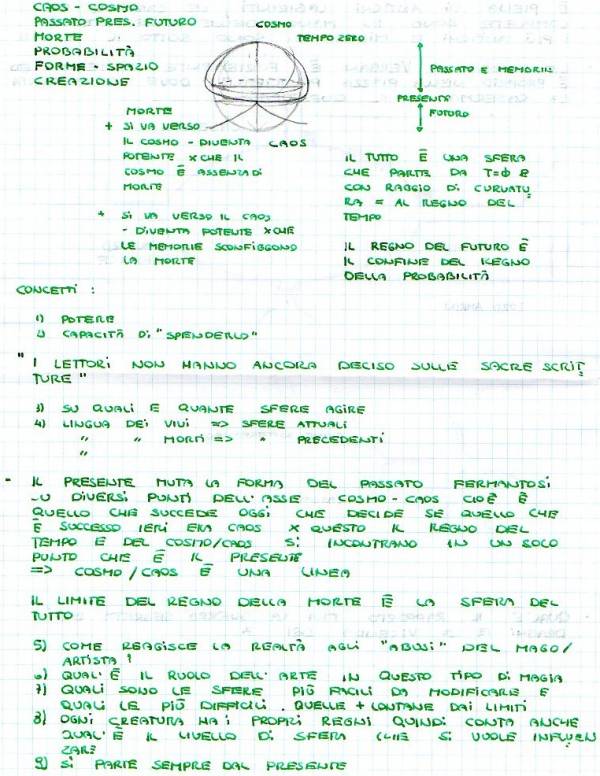 CAOS - COSMO
PASSATO PRES. FUTURO
MORTE
PROBABILITÀ
FORME - SPAZIO
CREAZIONE
COSMO
TEMPO ZERO
PASSATO E MEMORIE
PRESENTE
FUTURO
MORTE
+ SI VA VERSO
IL COSMO - DIVENTA CAOS
POTENTE XCHE IL
COSMO È ASSENZA DI
MORTE
+ SI VA VERSO IL CAOS
- DIVENTA POTENTE XCHE
LE MEMORIE SCONFIGGONO
LA MORTE
IL TUTTO È UNA SFERA
CHE PARTE DA T=Φ E
CON RAGGIO DI CURVATU
RA = AL REGNO DEL
TEMPO
IL REGNO DEL FUTURO È
IL CONFINE DEL REGNO
DELLA PROBABILITÀ
CONCETTI :
1) POTERE
2) CAPACITÀ DI "SPENDERLO"
" I LETTORI NON HANNO ANCORA DECISO SULLE SACRE SCRIT
TURE "
3) SU QUALI E QUANTE SFERE AGIRE
4) LINGUA DEI VIVI => SFERE ATTUALI
" " MORTI => " PRECEDENTI
"
- IL PRESENTE MUTA LA FORMA DEL PASSATO FERMANTOSI
SU DIVERSI PUNTI DELL'ASSE COSMO-CAOS CIOÈ È
QUELLO CHE SUCCEDE OGGI CHE DECIDE SE QUELLO CHE
È SUCCESSO IERI ERA CAOS X QUESTO IL REGNO DEL
TEMPO E DEL COSMO/CAOS SI INCONTRANO IN UN SOLO
PUNTO CHE È IL PRESENTE
=> COSMO/CAOS È UNA LINEA
IL LIMITE DEL REGNO DELLA MORTE È LA SFERA DEL
TUTTO
5) COME REAGISCE LA REALTÀ AGLI "ABUSI" DEL MAGO/
ARTISTA?
6) QUAL'È IL RUOLO DELL'ARTE IN QUESTO TIPO DI MAGIA
7) QUALI SONO LE SFERE PIÙ FACILI DA MODIFICARE E
QUALI LE PIÙ DIFFICILI. QUELLE + LONTANE DAI LIMITI
8) OGNI CREATURA HA I PROPRI REGNI QUINDI CONTA ANCHE
QUAL'È IL LIVELLO DI SFERA CHE SI VUOLE INFLUEN
ZARE
9) SI PARTE SEMPRE DAL PRESENTE